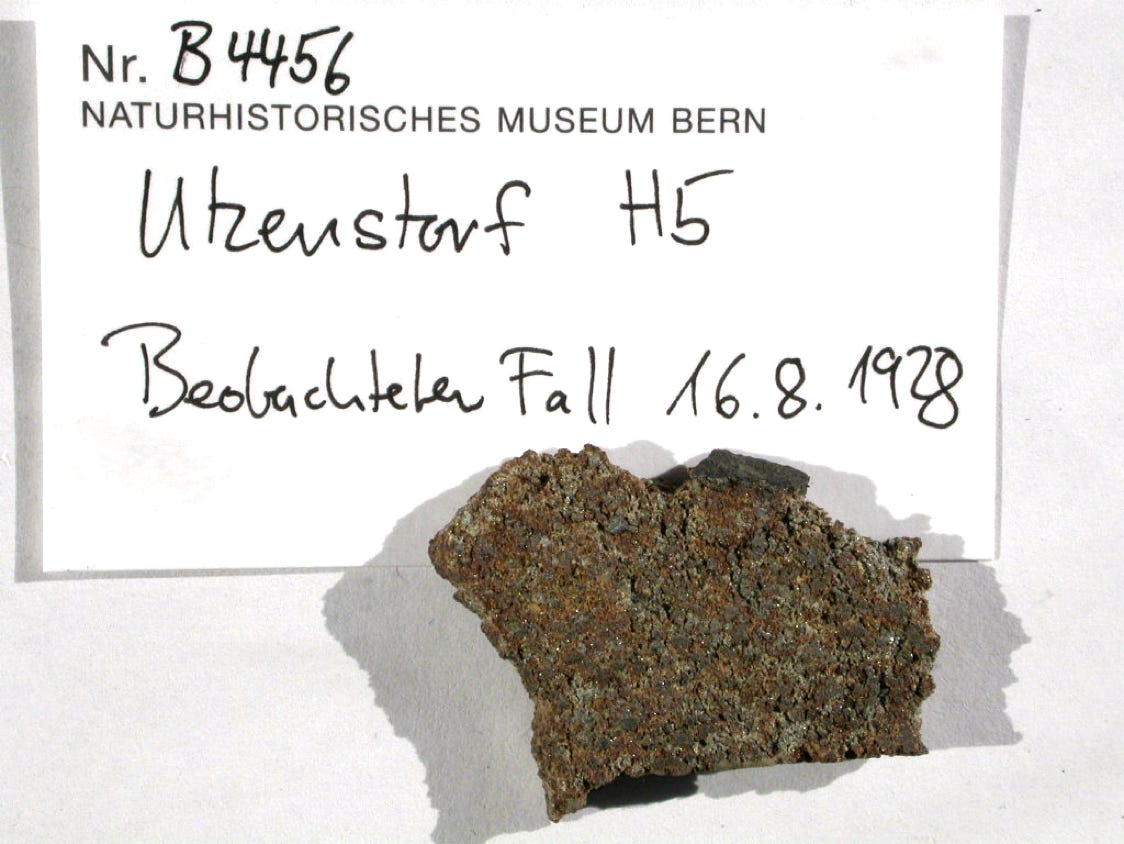 Nr. B4456
NATURHISTORISCHES MUSEUM BERN
Utzenstorf H5
Beobachteter Fall 16.8.1928